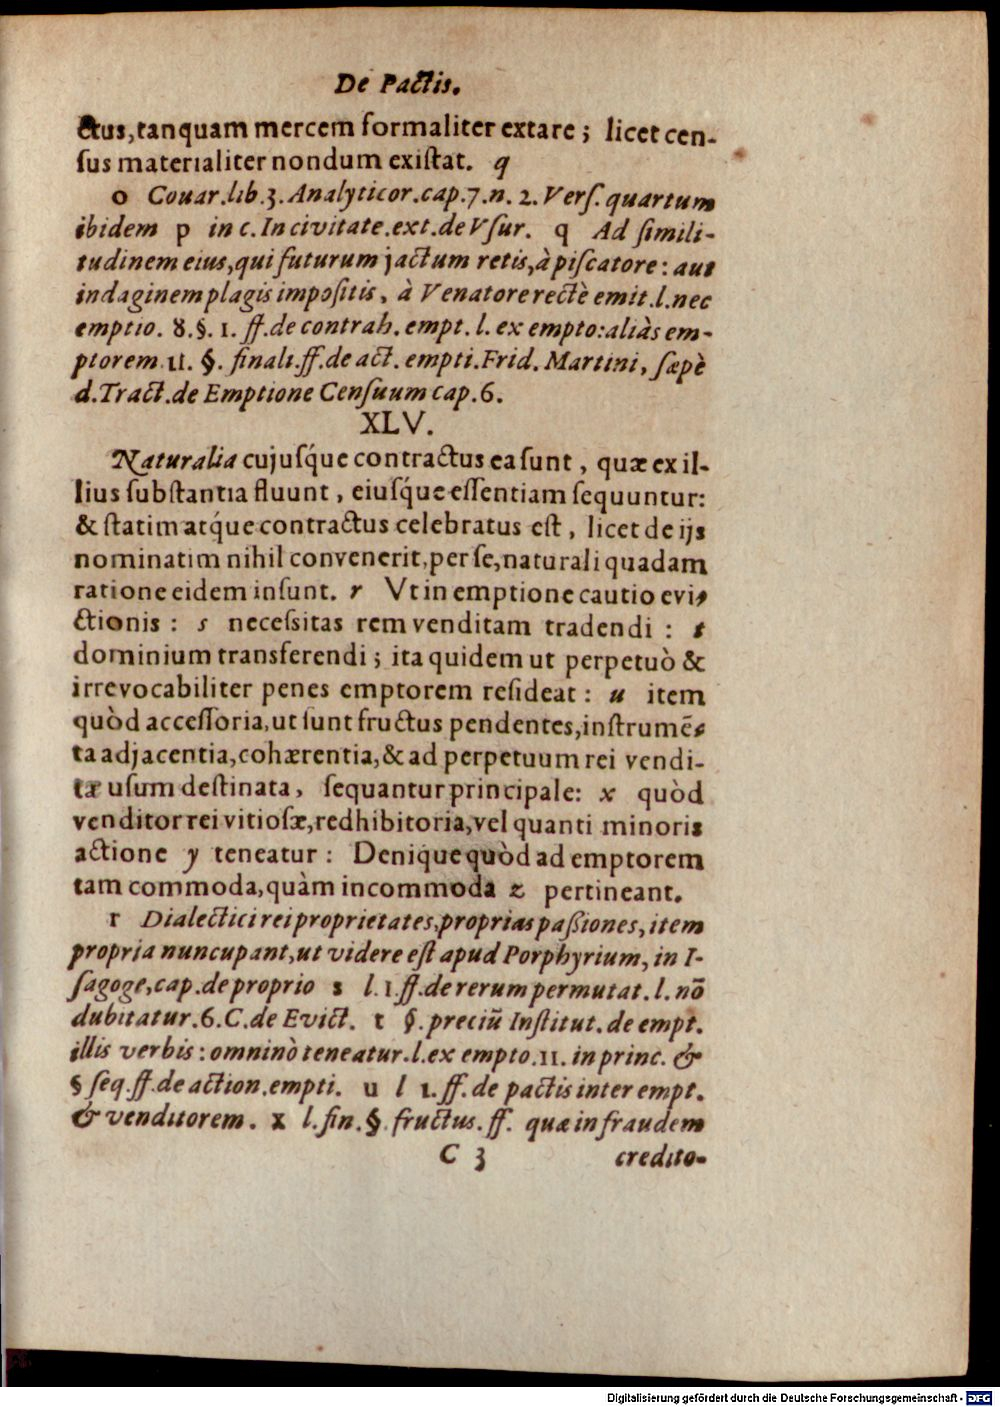 De Pactis.
ctus, tanquam mercem formaliter extare; licet cen-
sus materialiter nondum existat. q
o Covar. lib. 3. Analyticor. cap. 7. n. 2. Vers. quartum
ibidem p in c. In civitate. ext. de Usur. q Ad simili-
tudinem eius, qui futurum jactum retis, à piscatore: aut
indaginem plagis impositis, à Venatore rectè emit. l. nec
emptio. 8. §. 1. ff. de contrah. empt. l. ex empto: aliàs em-
ptorem 11. §. finali. ff. de act. empti. Frid. Martini, sæpè
d. Tract. de Emptione Censuum cap. 6.
XLV.
Naturalia cujusq́ue contractus ea sunt, quæ ex il-
lius substantia fluunt, eiusq́ue essentiam sequuntur:
& statim atq́ue contractus celebratus est, licet de ijs
nominatim nihil convenerit, per se, naturali quadam
ratione eidem insunt. r Vt in emptione cautio evi-
ctionis: s necessitas rem venditam tradendi: t
dominium transferendi; ita quidem ut perpetuò &
irrevocabiliter penes emptorem resideat: u item
quòd accessoria, ut sunt fructus pendentes, instrumē-
ta adjacentia, cohærentia, & ad perpetuum rei vendi-
tæ usum destinata, sequantur principale: x quòd
venditor rei vitiosæ, redhibitoria, vel quanti minoris
actione y teneatur: Denique quòd ad emptorem
tam commoda, quàm incommoda z pertineant.
r Dialectici rei proprietates, proprias passiones, item
propria nuncupant, ut videre est apud Porphyrium, in I-
sagoge, cap. de proprio s l. 1 ff. de rerum permutat. l. nō
dubitatur. 6. C. de Evict. t §. preciū Institut. de empt.
illis verbis: omninò teneatur. l. ex empto. 11. in princ. &
§ seq. ff. de action. empti. u l 1. ff. de pactis inter empt.
& venditorem. x l. fin. § fructus. ff. quæ in fraudem
C 3 credito-
Digitalisierung gefördert durch die Deutsche Forschungsgemeinschaft - DFG